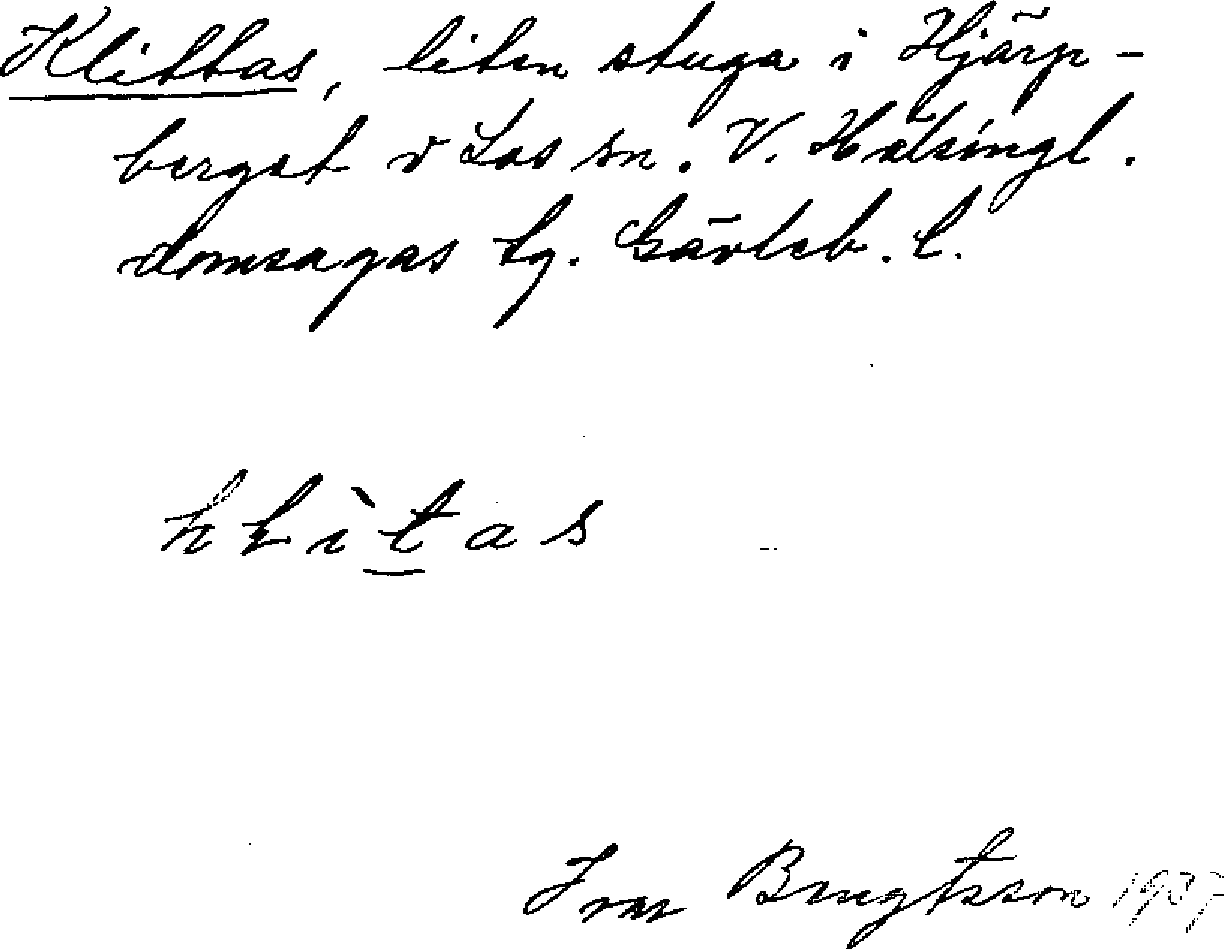 Klittas, liten stuga i Hjärp-
berget v Los sn. V. Hälsingl.
domsagas tg. Gävleb. l.
klìtas
Ivar Bengtsson 1937